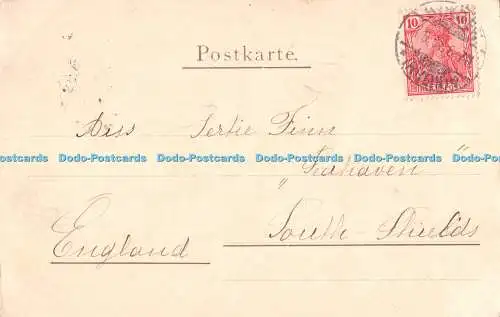 10 10
Postkarte.
Miss Gertie Finn
Dodo-Postcards Dodo-Postcards Dodo-Postcards Dodo-Postcards Dodo-Postcards Dodo-Postcards
"Seahaven"
South-Shields
England